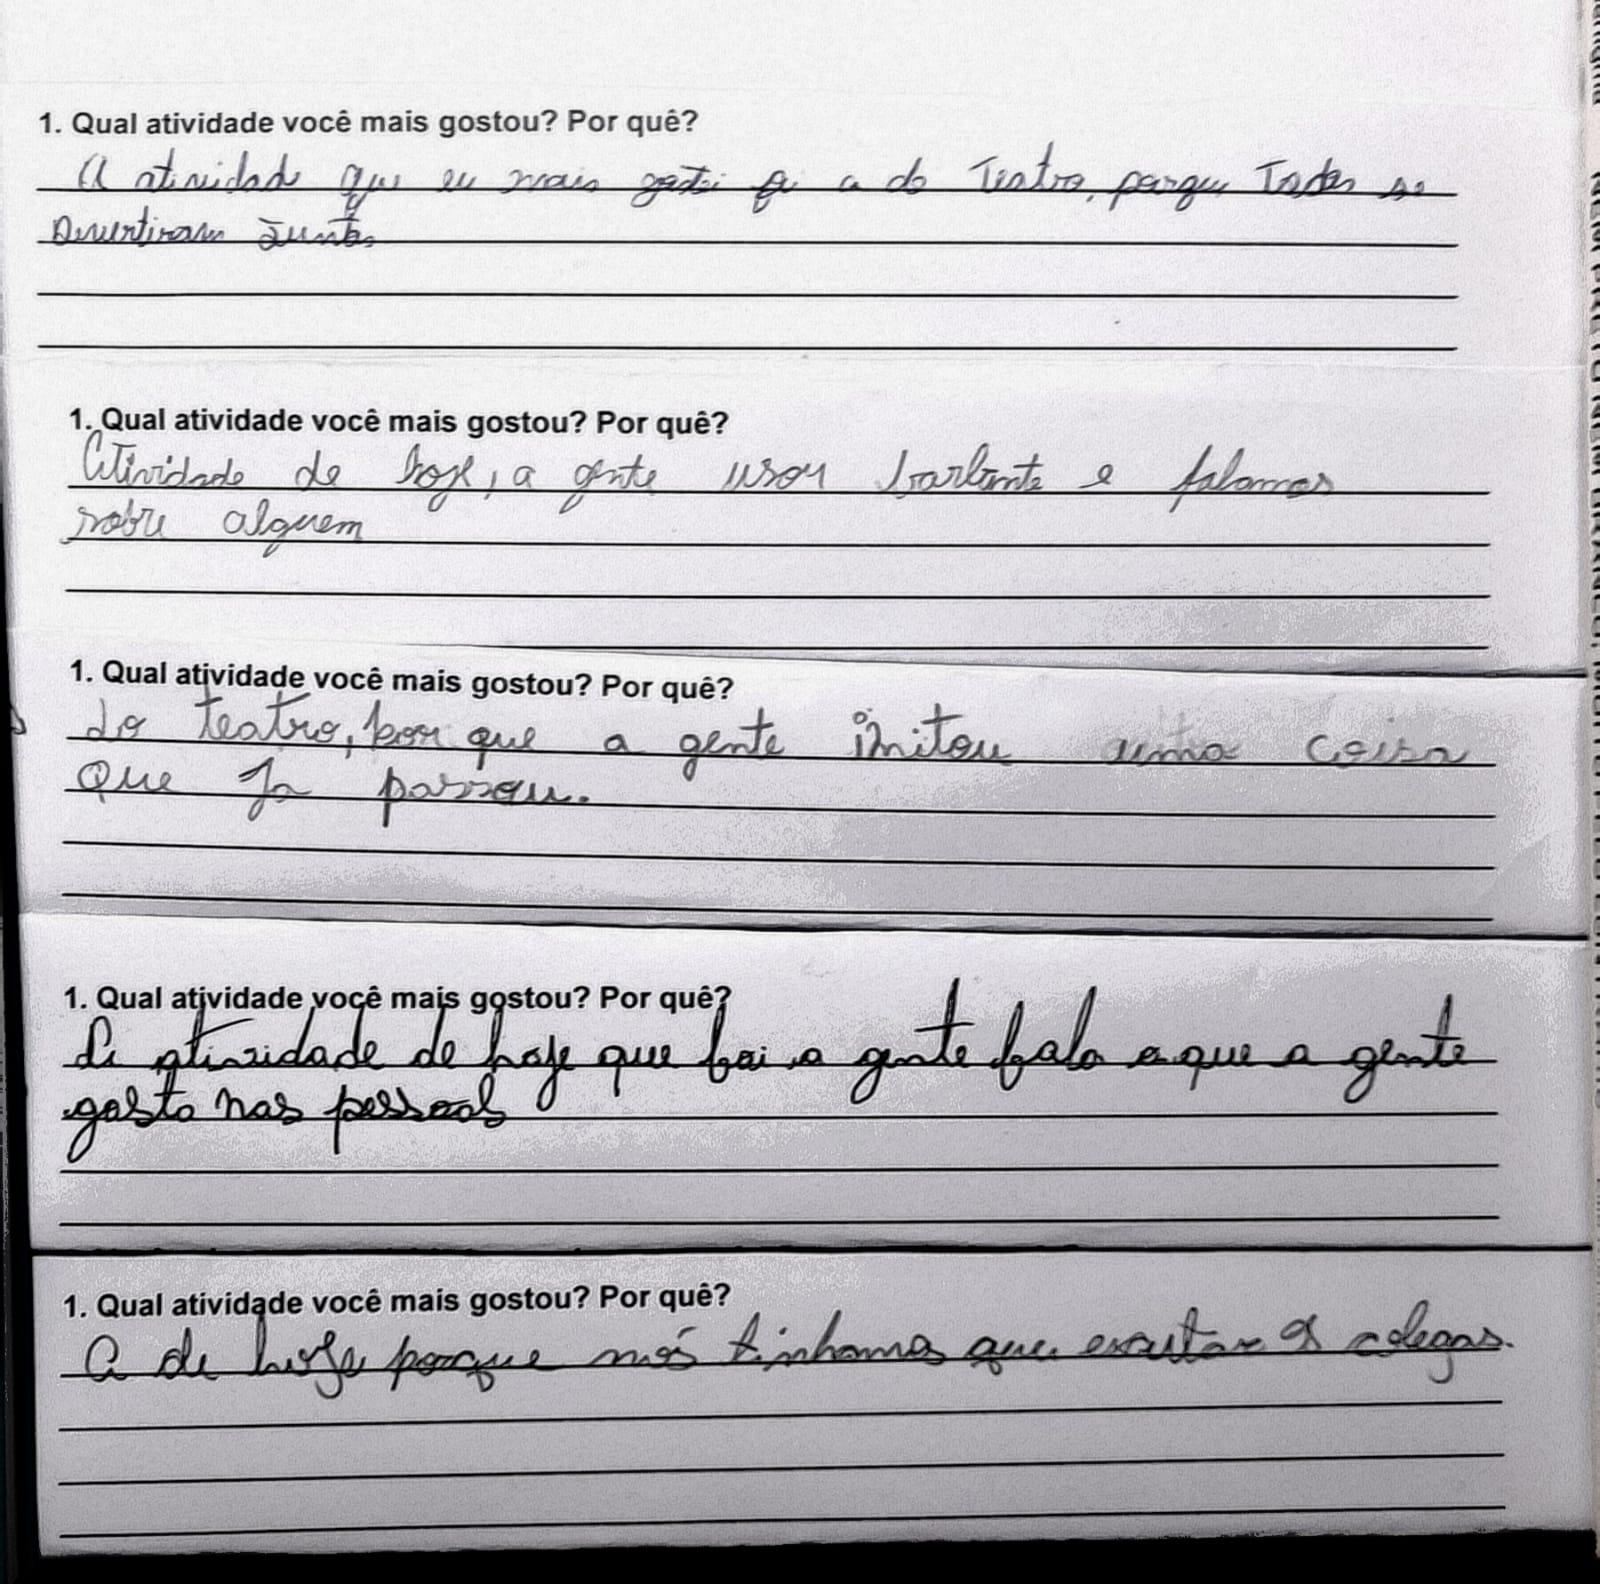 1. Qual atividade você mais gostou? Por quê?
A atividade que eu mais gostei foi a do Teatro, porque Todos se
Divertiram Juntos
1. Qual atividade você mais gostou? Por quê?
Atividade de hoje, a gente usou barbante e falamos
sobre alguem
1. Qual atividade você mais gostou? Por quê?
do teatro, por que a gente imitou uma coisa
que Ja passou.
1. Qual atividade você mais gostou? Por quê?
atividade de hoje que foi a gente fala o que a gente
gosta nas pessoas
1. Qual atividade você mais gostou? Por quê?
A de hoje porque nós tinhamos que escutar os colegas.